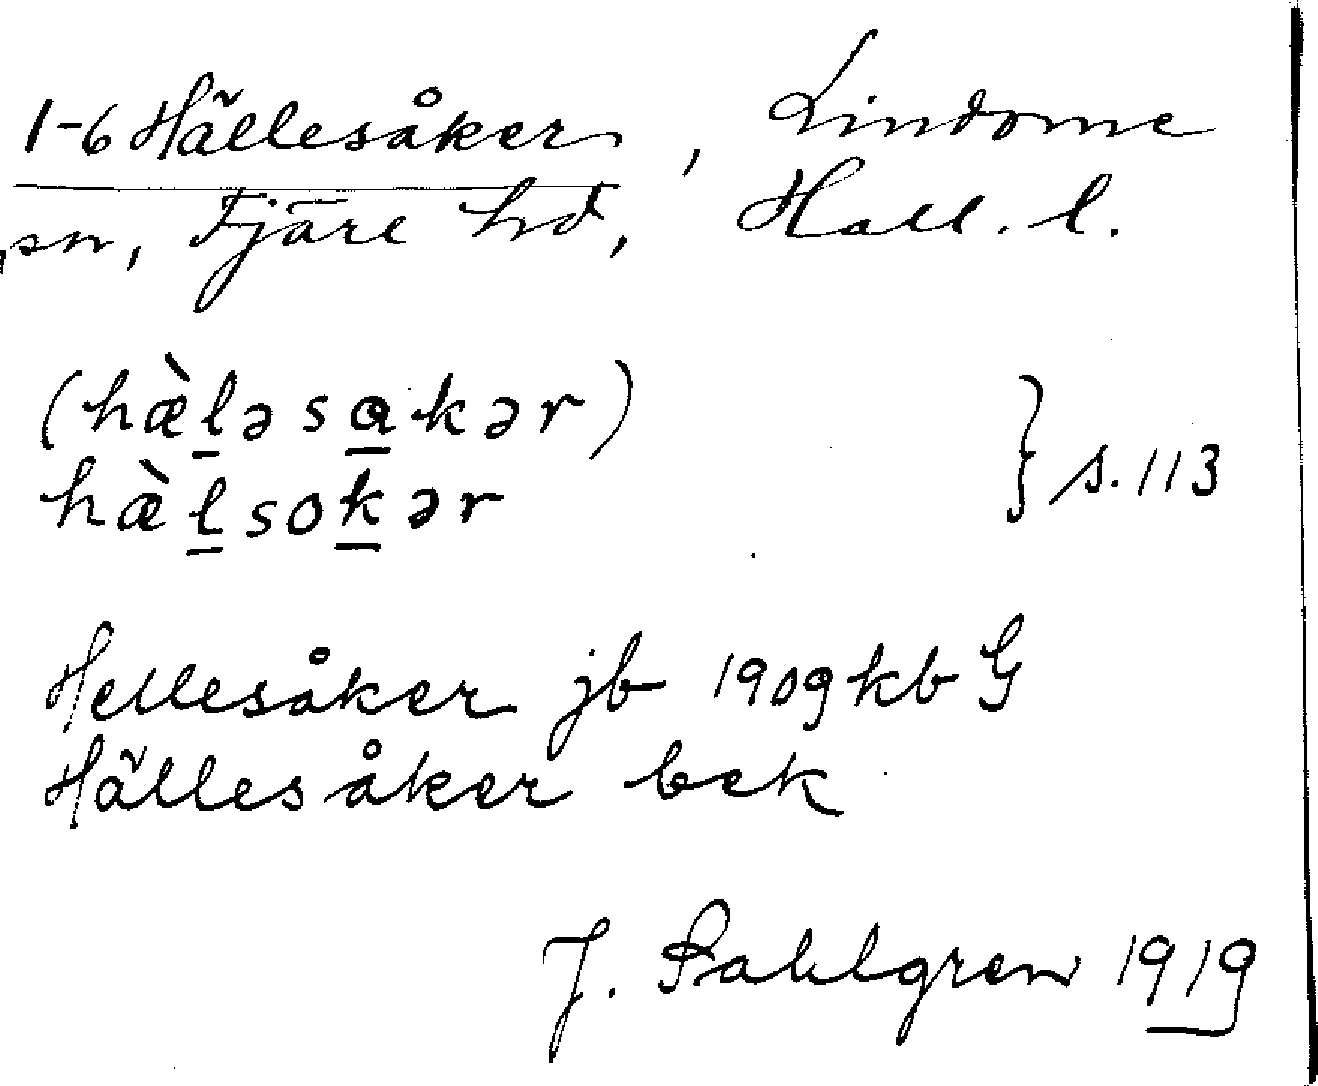 1-6 Hällesåker, Lindome
sn, Fjäre hd, Hall. l.
(hæ̀l̲əsa̲kər)
hæ̀l̲sok̲ər } s. 113
Hellesåker jb 1909 kb G
Hällesåker bek
J. Sahlgren 1919